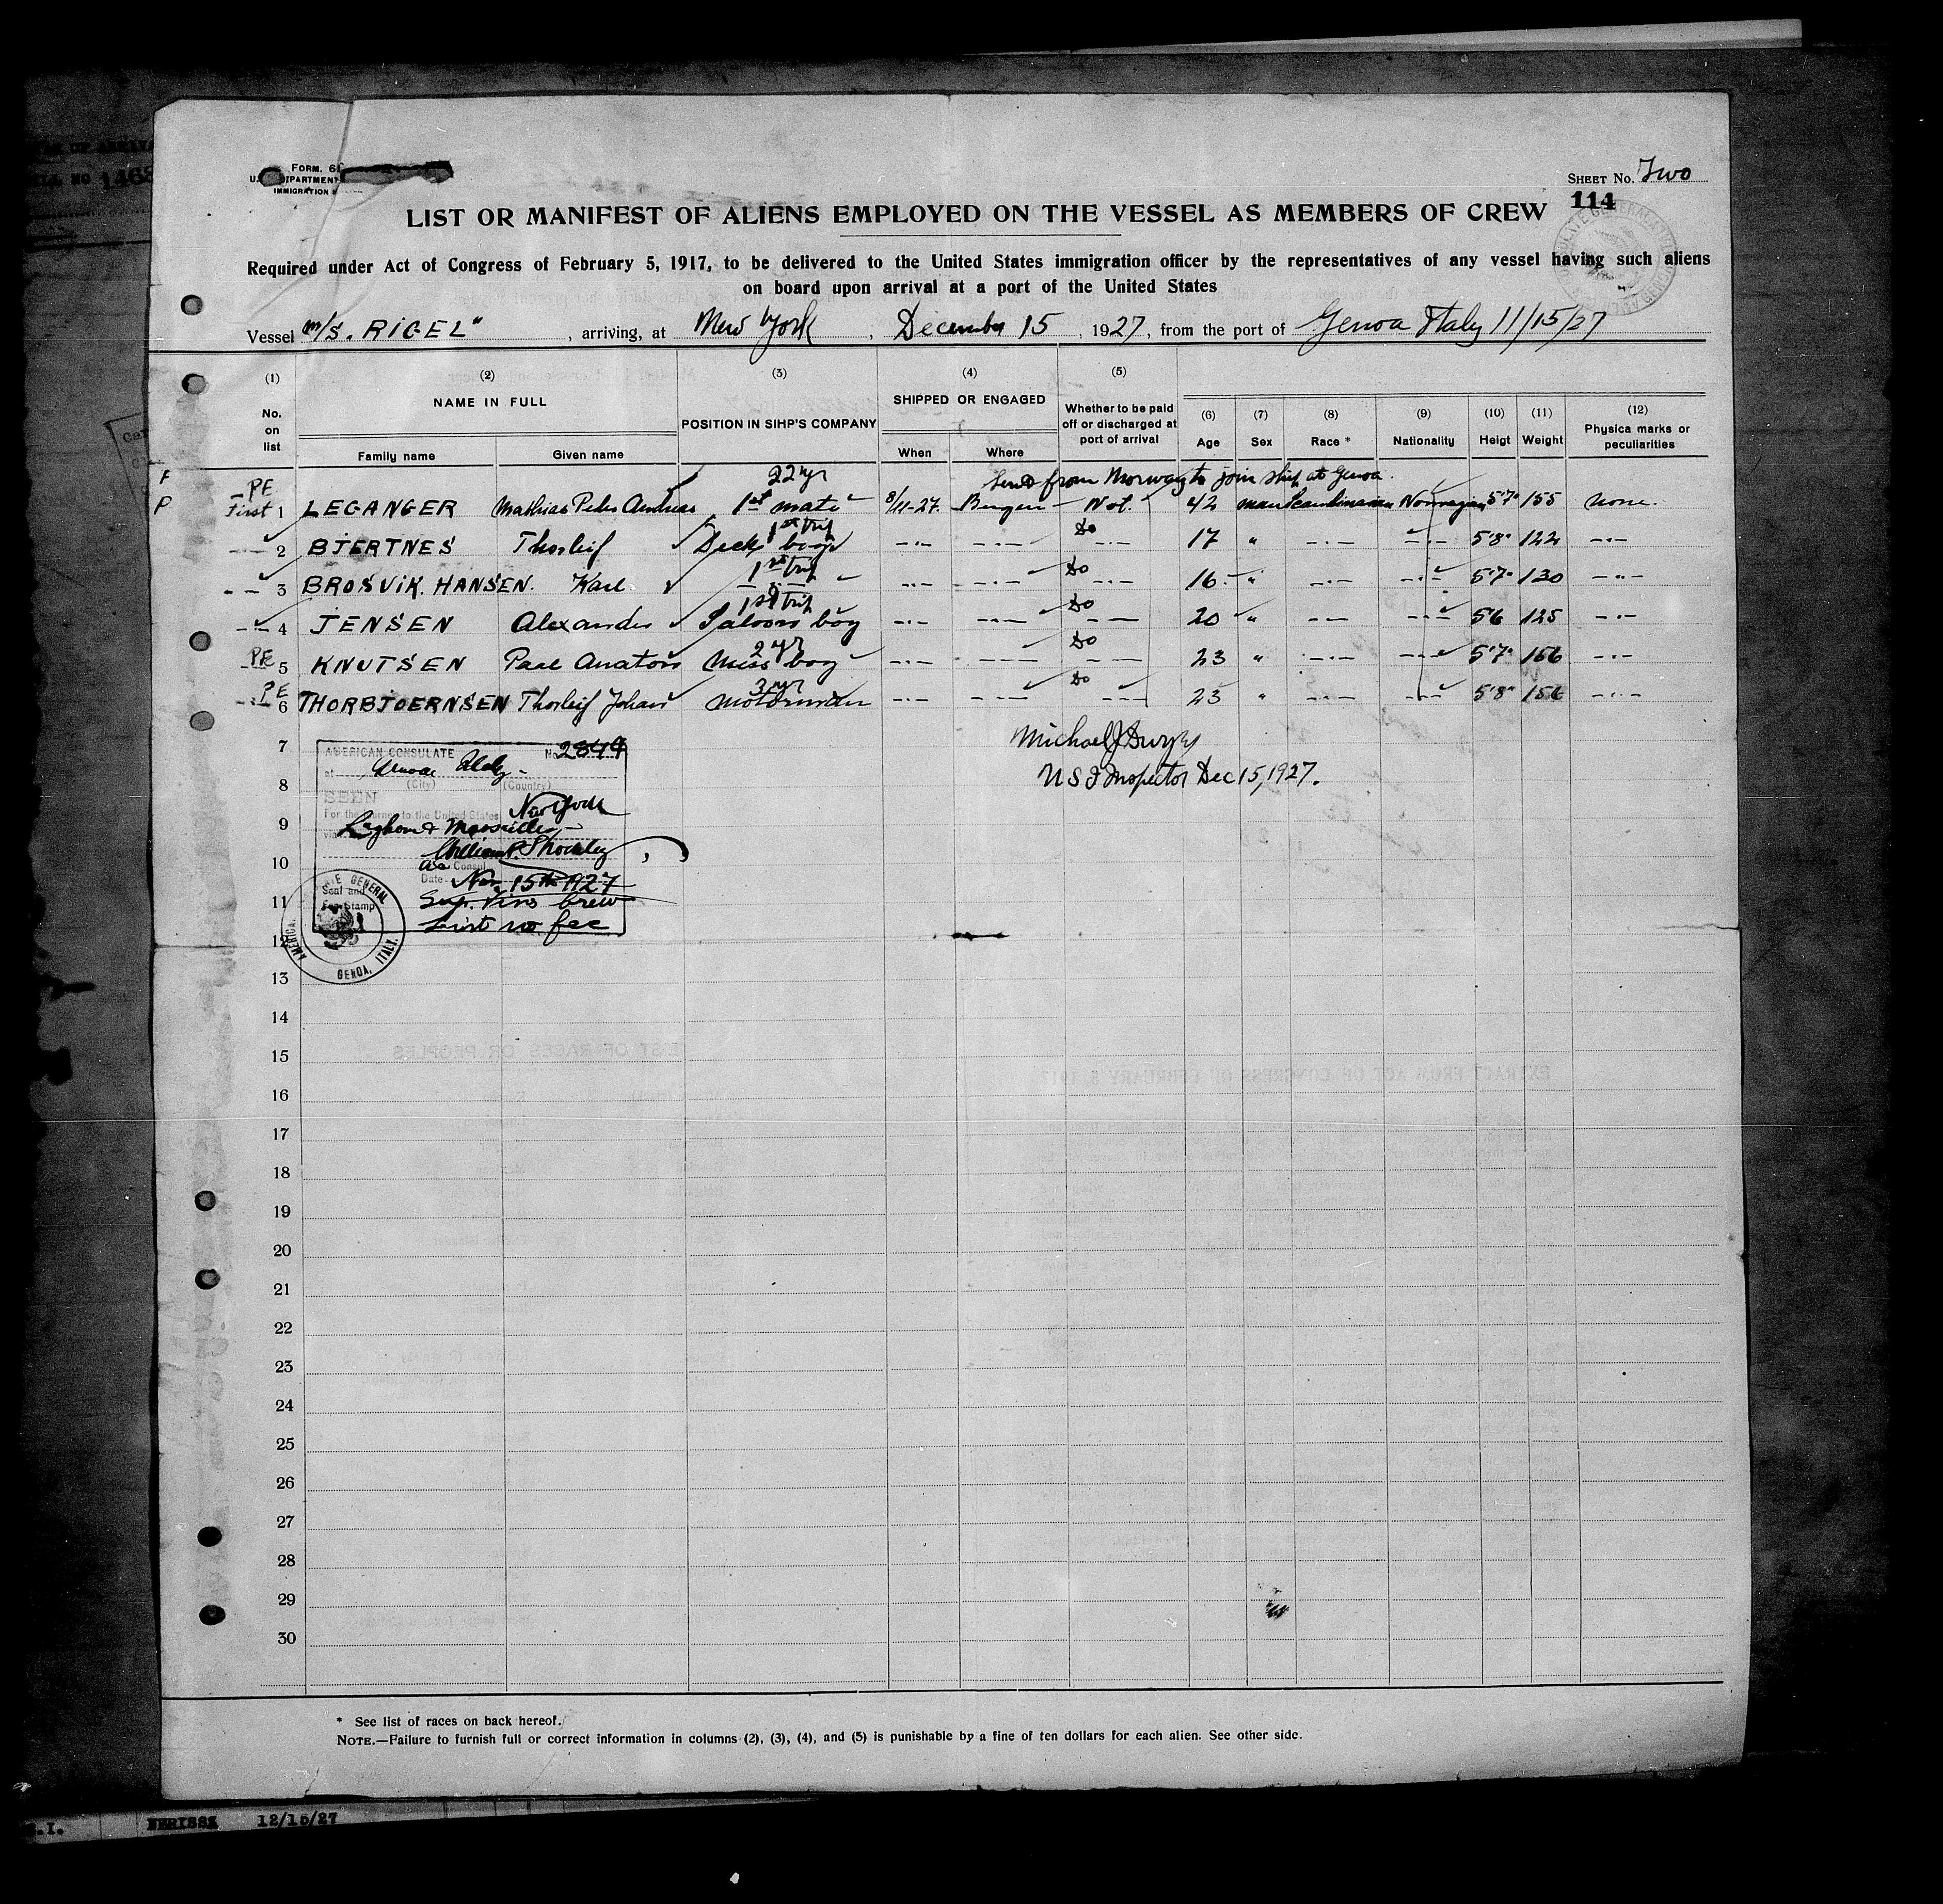 FORM. 6
U. DEPARTMENT
IMMIGRATION
SHEET No. Two
114
LIST OR MANIFEST OF ALIENS EMPLOYED ON THE VESSEL AS MEMBERS OF CREW
Required under Act of Congress of February 5, 1917, to be delivered to the United States immigration officer by the representatives of any vessel having such aliens
on board upon arrival at a port of the United States
Vessel M/S. RIGEL" , arriving, at New York , December 15 , 1927, from the port of Genoa Italy 11/15/27
(1) (2) (3) (4) (5) (6) (7) (8) (9) (10) (11) (12)
No. on list NAME IN FULL Family name Given name POSITION IN SIHP'S COMPANY SHIPPED OR ENGAGED When Where Whether to be paid off or discharged at port of arrival Age Sex Race * Nationality Heigt Weight Physica marks or peculiarities
F
PE 22 yr Send from Norway to join ship at Genoa.
P First 1 LEGANGER Mathias Peder Andreas 1st mate 8/11-27. Bergen Not. 42 man Scandinavian Norwegian 5'7" 155 none.
1st trip Do
2 BJERTNES Thorleif Decks boy —"— —"— —"— 17 " —"— —"— 5'8" 122 —"—
1st trip Do
3 BROSVIK. HANSEN. Karl —"— —"— —"— —"— 16 " —"— —"— 5'7" 130 —"—
1st trip Do
4 JENSEN Alexander Saloon boy —"— —"— —"— 20 " —"— —"— 5'6 125 —"—
2 yr Do
PE 5 KNUTSEN Paal Anaton Mess boy —"— —"— —"— 23 " —"— —"— 5'7" 166 —"—
3 yr Do
PE 6 THORBJOERNSEN Thorleif Johan Motorman —"— —"— —"— 23 " —"— —"— 5'8" 156 —"—
7
8
9
10
11
12
13
14
15
16
17
18
19
20
21
22
23
24
25
26
27
28
29
30
Michael J.
U S I Inspector Dec 15, 1927.
AMERICAN CONSULATE No. 2849
at Genoa Italy
(City) (Country)
SEEN
For the journey to the United States New York
via Leghorn & Marseilles
William P. Shockley
Consul
Date Nov. 15th 1927
Seal and
Fee Stamp
Sup. Visa Crew
List no fee
GENERAL
AMERICA. GENOA, ITALY.
* See list of races on back hereof.
NOTE.—Failure to furnish full or correct information in columns (2), (3), (4), and (5) is punishable by a fine of ten dollars for each alien. See other side.
12/15/27